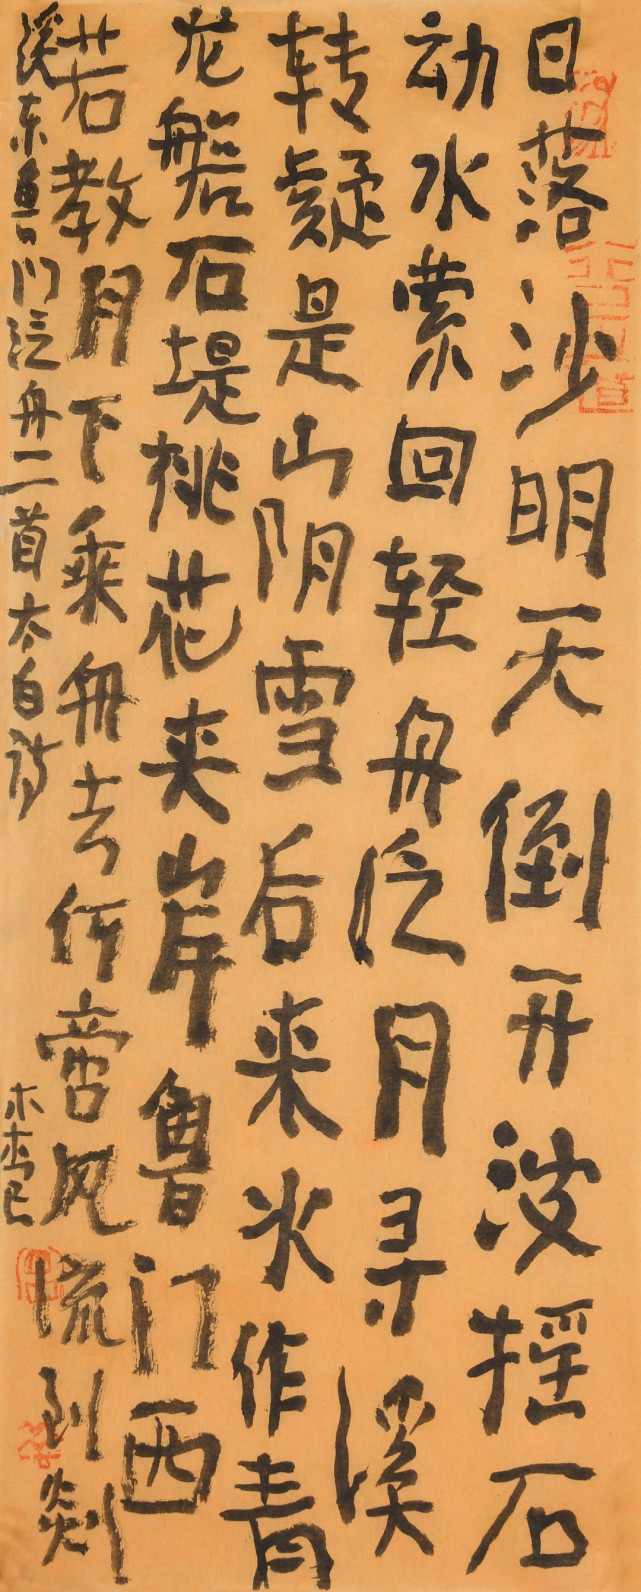 日落沙明天倒开波摇石
动水萦回轻舟泛月寻溪
转疑是山阴雪后来水作青
龙磐石堤桃花夹岸鲁门西
若教月下乘舟去何啻风流到剡
溪东鲁门泛舟二首太白诗